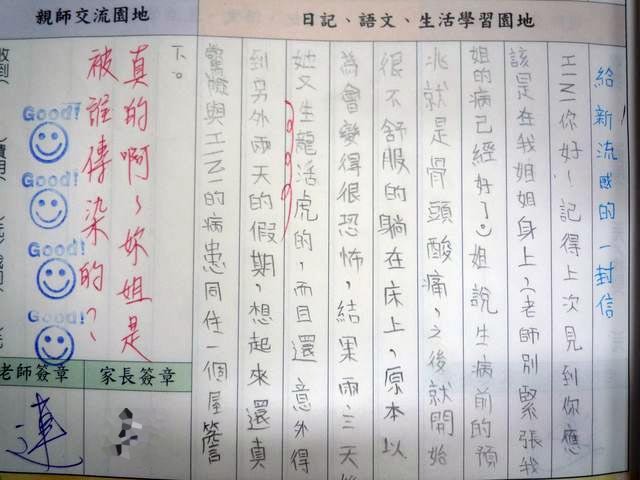 日記、語文、生活學習園地
給新流感的一封信
H1N1你好！記得上次見到你應
該是在我姐姐身上，(老師別緊張我
姐的病已經好了)姐說生病前的預
兆就是骨頭酸痛，之後就開始
很不舒服的躺在床上，原本以
為會變得很恐怖，結果兩三天
她又生龍活虎的，而且還意外得
到另外兩天的假期，想起來還真
與H1N1的病患同住一個屋簷
下。
親師交流園地
真的啊~妳姐是
被誰傳染的？
Good!
Good!
Good!
Good!
老師簽章
家長簽章
連